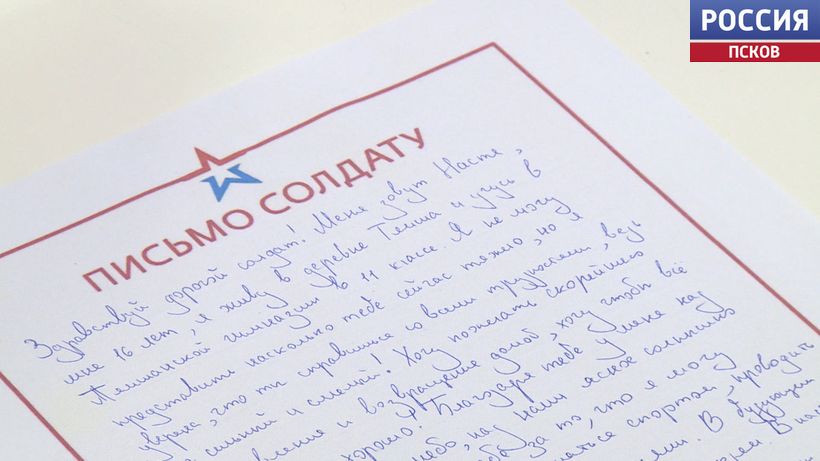 РОССИЯ
ПСКОВ
ПИСЬМО СОЛДАТУ
Здравствуй дорогой солдат! Меня зовут Настя,
мне 16 лет, я живу в деревне и учусь в
гимназии в 11 классе. Я не могу
представить насколько тебе сейчас тяжело, но я
уверена, что ты справишься со всеми трудностями, ведь
сильный и смелый! Хочу пожелать скорейшего
и возвращения домой, хочу чтобы всё
хорошо! Благодаря тебе у меня над
небо, над нами ясное солнышко
за то, что я могу
спортом, проводить
В будущем